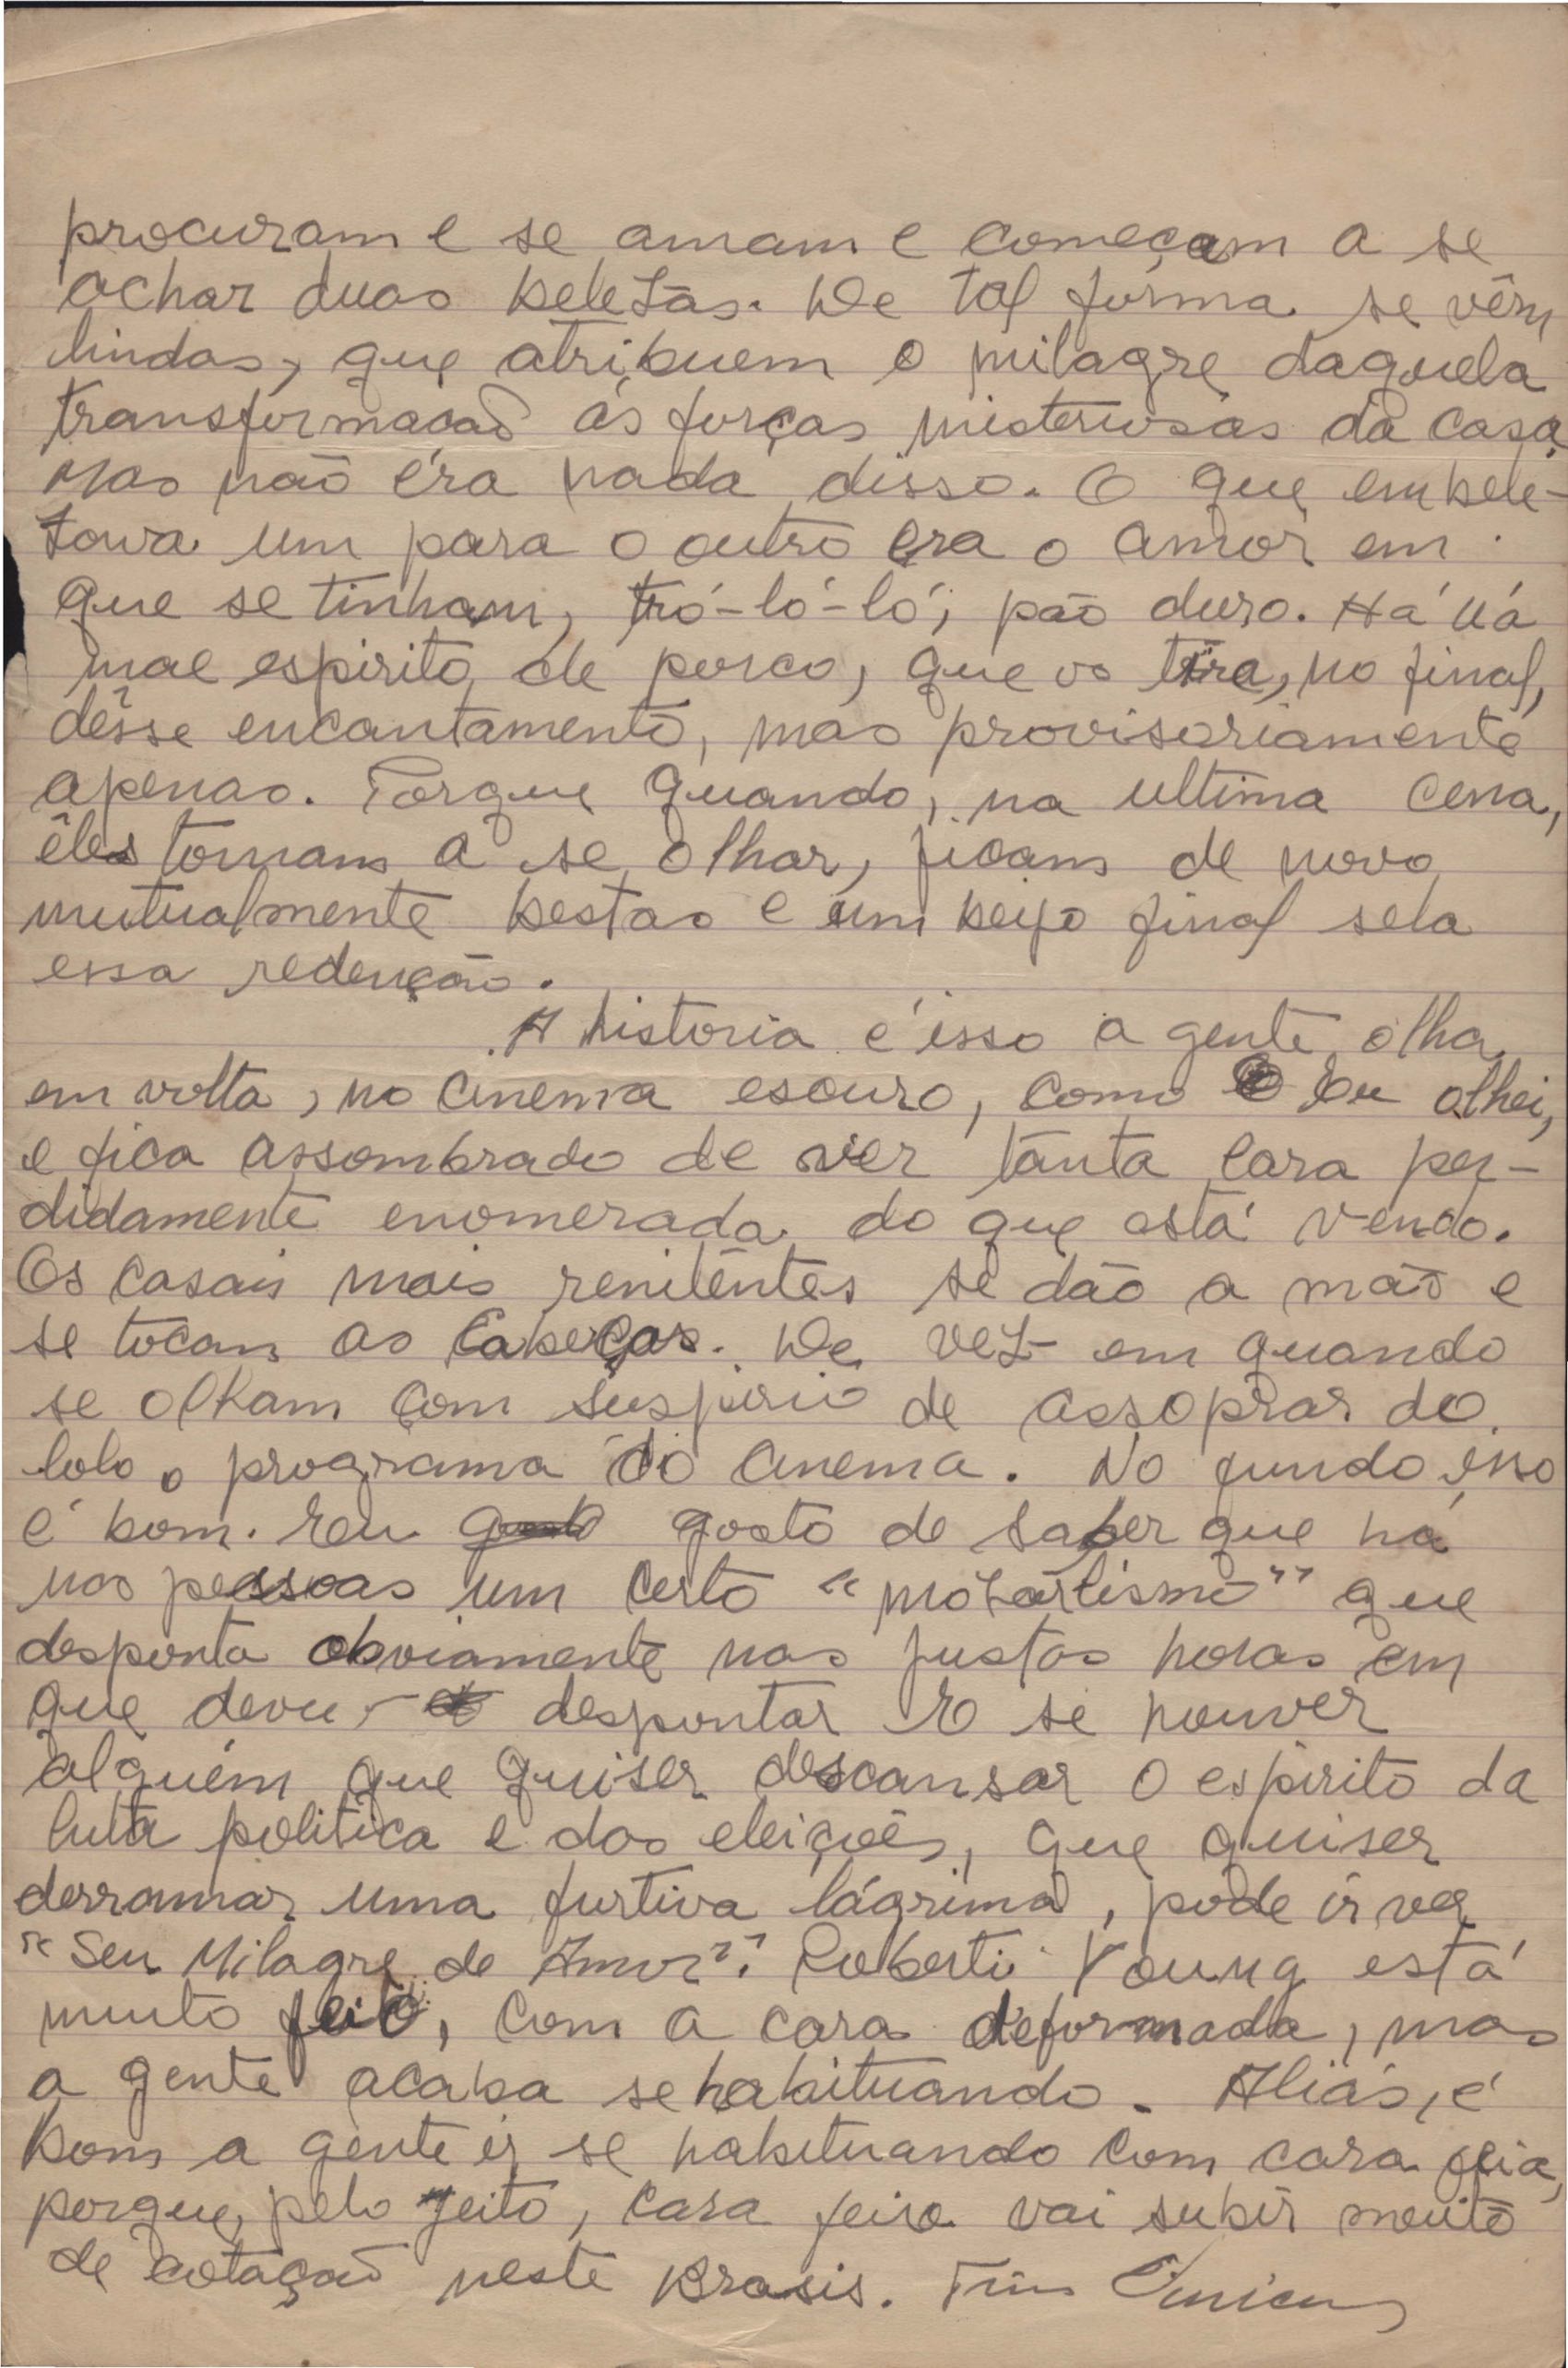 procuram e se amam e começam a se
achar duas belezas. De tal forma se vêm
lindas, que atribuem o milagre daquela
transformação ás forças misteriosas da casa
Mas não éra nada disso. O que embele-
zava um para o outro era o amor em
que se tinham, tró-ló-ló, pão duro. Há uá
mae espirito de porco, que os tira, no final,
dêsse encantamento, mas provisoriamente
apenas. Porque quando, na ultima cena,
êles tornam a se olhar, ficam de novo
mutualmente bestas e um beijo final sela
essa redenção.
A historia é isso a gente olha
em volta, no cinema escuro, como eu olhei,
e fica assombrado de ver tanta cara per-
didamente enomerada do que está vendo.
Os casais mais renitentes se dão a mão e
se tocam as cabeças. De vez em quando
se olham com suspiro de assoprar do
lolo o programa do cinema. No fundo isso
é bom. Eu gosto de saber que há
nas pessoas um certo "mozartismo" que
desponta obviamente nas justas horas em
que deve despontar E se houver
alguém que quiser descansar o espirito da
luta politica e das eleições, que quiser
derramar uma furtiva lágrima, pode ir ver
"Seu Milagre de Amor". Roberti Young está
muito feio, com a cara deformada, mas
a gente acaba se habituando. Aliás, é
bom a gente ir se habituando com cara feia,
porque, pelo jeito, cara feia vai subir muito
de cotação neste Brasis.